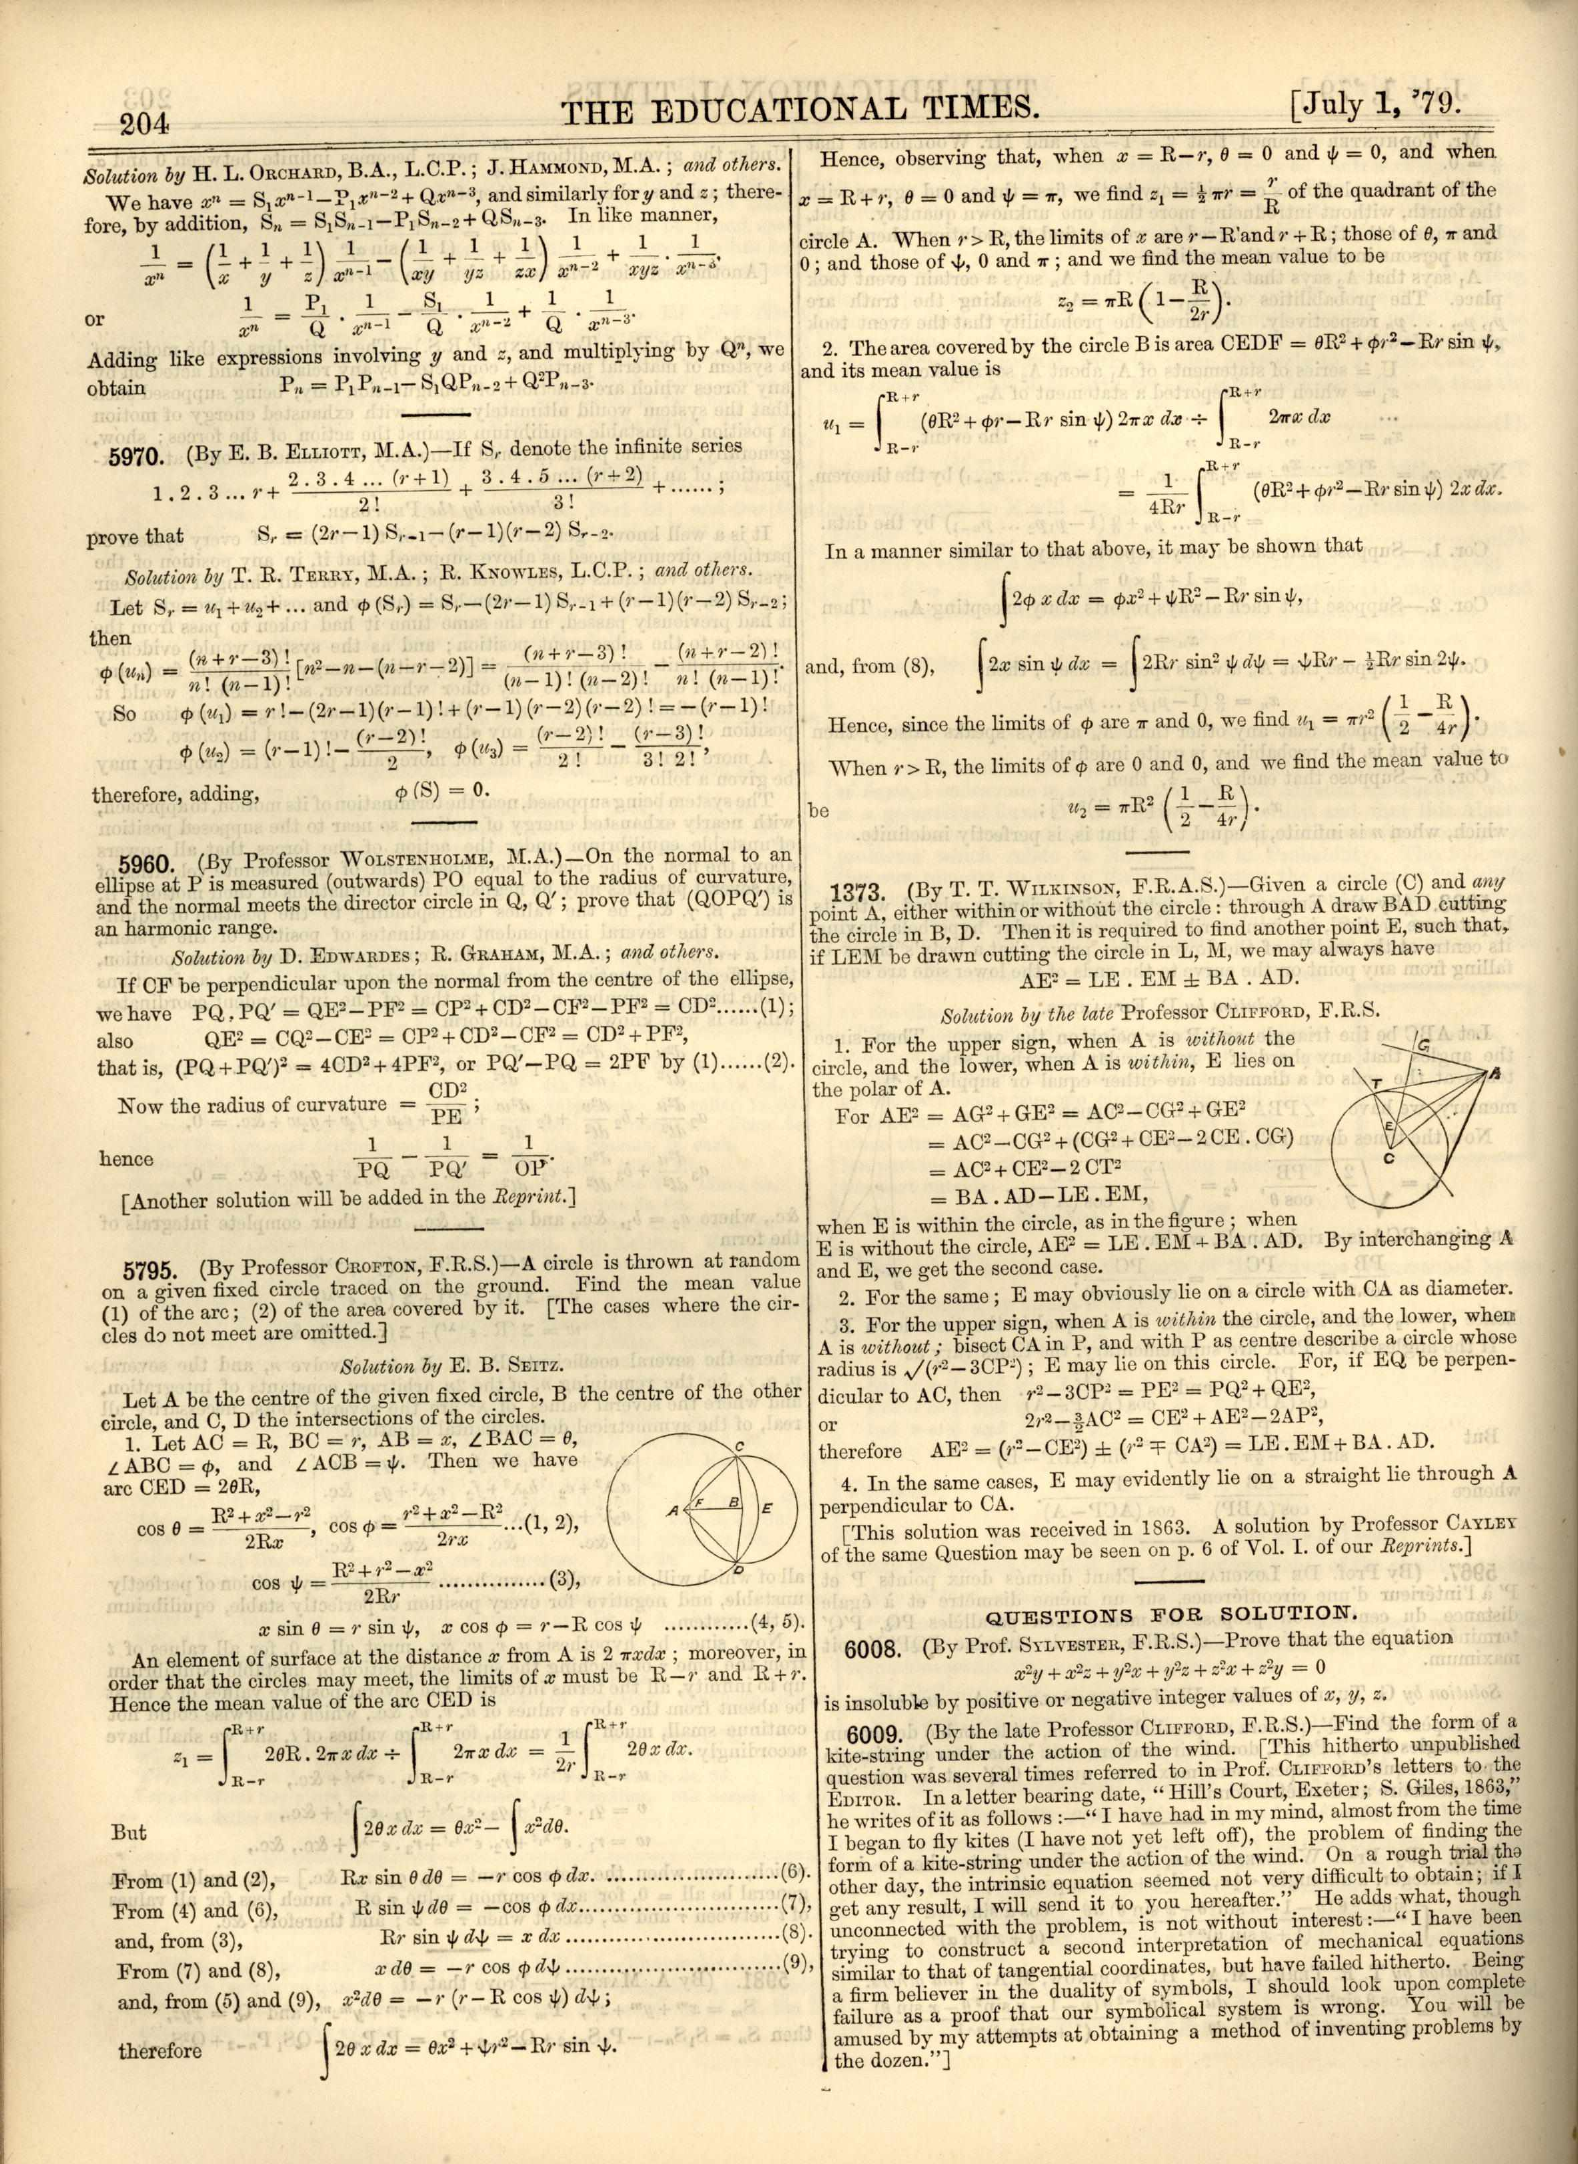 204
THE EDUCATIONAL TIMES.
[July 1, ’79.
Solution by H. L. ORCHARD, B.A., L.C.P.; J. HAMMOND, M.A.; and others.
We have xⁿ = S₁xⁿ⁻¹−P₁xⁿ⁻²+Qxⁿ⁻³, and similarly for y and z; there-
fore, by addition, Sₙ = S₁Sₙ₋₁−P₁Sₙ₋₂+QSₙ₋₃. In like manner,
1/xⁿ = (1/x + 1/y + 1/z) 1/xⁿ⁻¹ − (1/xy + 1/yz + 1/zx) 1/xⁿ⁻² + 1/xyz · 1/xⁿ⁻³.
or 1/xⁿ = P₁/Q · 1/xⁿ⁻¹ − S₁/Q · 1/xⁿ⁻² + 1/Q · 1/xⁿ⁻³.
Adding like expressions involving y and z, and multiplying by Qⁿ, we
obtain Pₙ = P₁Pₙ₋₁−S₁QPₙ₋₂+Q²Pₙ₋₃.
5970. (By E. B. ELLIOTT, M.A.)—If Sᵣ denote the infinite series
1.2.3...r + 2.3.4...(r+1)/2! + 3.4.5...(r+2)/3! + ......;
prove that Sᵣ = (2r−1) Sᵣ₋₁−(r−1)(r−2) Sᵣ₋₂.
Solution by T. R. TERRY, M.A.; R. KNOWLES, L.C.P.; and others.
Let Sᵣ = u₁+u₂+... and φ(Sᵣ) = Sᵣ−(2r−1) Sᵣ₋₁+(r−1)(r−2) Sᵣ₋₂;
then
φ(uₙ) = (n+r−3)!/n!(n−1)! [n²−n−(n−r−2)] = (n+r−3)!/(n−1)!(n−2)! − (n+r−2)!/n!(n−1)!.
So φ(u₁) = r!−(2r−1)(r−1)!+(r−1)(r−2)(r−2)! = −(r−1)!
φ(u₂) = (r−1)!−(r−2)!/2, φ(u₃) = (r−2)!/2! − (r−3)!/3!2!,
therefore, adding, φ(S) = 0.
5960. (By Professor WOLSTENHOLME, M.A.)—On the normal to an
ellipse at P is measured (outwards) PO equal to the radius of curvature,
and the normal meets the director circle in Q, Q′; prove that (QOPQ′) is
an harmonic range.
Solution by D. EDWARDES; R. GRAHAM, M.A.; and others.
If CF be perpendicular upon the normal from the centre of the ellipse,
we have PQ.PQ′ = QE²−PF² = CP²+CD²−CF²−PF² = CD²......(1);
also QE² = CQ²−CE² = CP²+CD²−CF² = CD²+PF²,
that is, (PQ+PQ′)² = 4CD²+4PF², or PQ′−PQ = 2PF by (1)......(2).
Now the radius of curvature = CD²/PE;
hence 1/PQ − 1/PQ′ = 1/OP.
[Another solution will be added in the Reprint.]
5795. (By Professor CROFTON, F.R.S.)—A circle is thrown at random
on a given fixed circle traced on the ground. Find the mean value
(1) of the arc; (2) of the area covered by it. [The cases where the cir-
cles do not meet are omitted.]
Solution by E. B. SEITZ.
Let A be the centre of the given fixed circle, B the centre of the other
circle, and C, D the intersections of the circles.
1. Let AC = R, BC = r, AB = x, ∠BAC = θ,
∠ABC = φ, and ∠ACB = ψ. Then we have
arc CED = 2θR,
cos θ = (R²+x²−r²)/2Rx, cos φ = (r²+x²−R²)/2rx ...(1, 2),
cos ψ = (R²+r²−x²)/2Rr ...............(3),
C
A F B E
D
x sin θ = r sin ψ, x cos φ = r−R cos ψ ............(4, 5).
An element of surface at the distance x from A is 2 πxdx; moreover, in
order that the circles may meet, the limits of x must be R−r and R+r.
Hence the mean value of the arc CED is
z₁ = ∫_{R−r}^{R+r} 2θR.2πx dx ÷ ∫_{R−r}^{R+r} 2πx dx = 1/2r ∫_{R−r}^{R+r} 2θx dx.
But ∫2θx dx = θx²− ∫x²dθ.
From (1) and (2), Rx sin θ dθ = −r cos φ dx. ..............................(6).
From (4) and (6), R sin ψ dθ = −cos φ dx..............................(7),
and, from (3), Rr sin ψ dψ = x dx ..............................(8).
From (7) and (8), x dθ = −r cos φ dψ ..............................(9),
and, from (5) and (9), x²dθ = −r (r−R cos ψ) dψ;
therefore ∫2θ x dx = θx²+ψr²−Rr sin ψ.
Hence, observing that, when x = R−r, θ = 0 and ψ = 0, and when
x = R+r, θ = 0 and ψ = π, we find z₁ = ½ πr = r/R of the quadrant of the
circle A. When r > R, the limits of x are r−R and r+R; those of θ, π and
0; and those of ψ, 0 and π; and we find the mean value to be
z₂ = πR (1−R/2r).
2. The area covered by the circle B is area CEDF = θR²+φr²−Rr sin ψ,
and its mean value is
u₁ = ∫_{R−r}^{R+r} (θR²+φr−Rr sin ψ) 2πx dx ÷ ∫_{R−r}^{R+r} 2πx dx
= 1/4Rr ∫_{R−r}^{R+r} (θR²+φr²−Rr sin ψ) 2x dx.
In a manner similar to that above, it may be shown that
∫2φ x dx = φx²+ψR²−Rr sin ψ,
and, from (8), ∫2x sin ψ dx = ∫2Rr sin² ψ dψ = ψRr − ½Rr sin 2ψ.
Hence, since the limits of φ are π and 0, we find u₁ = πr² (1/2 − R/4r).
When r > R, the limits of φ are 0 and 0, and we find the mean value to
be u₂ = πR² (1/2 − R/4r).
1373. (By T. T. WILKINSON, F.R.A.S.)—Given a circle (C) and any
point A, either within or without the circle: through A draw BAD cutting
the circle in B, D. Then it is required to find another point E, such that,
if LEM be drawn cutting the circle in L, M, we may always have
AE² = LE . EM ± BA . AD.
Solution by the late Professor CLIFFORD, F.R.S.
1. For the upper sign, when A is without the
circle, and the lower, when A is within, E lies on
the polar of A.
For AE² = AG²+GE² = AC²−CG²+GE²
= AC²−CG²+(CG²+CE²−2 CE . CG)
= AC²+CE²−2 CT²
= BA . AD−LE . EM,
G
A
T
E
C
when E is within the circle, as in the figure; when
E is without the circle, AE² = LE . EM + BA . AD. By interchanging A
and E, we get the second case.
2. For the same; E may obviously lie on a circle with CA as diameter.
3. For the upper sign, when A is within the circle, and the lower, when
A is without; bisect CA in P, and with P as centre describe a circle whose
radius is √(r²−3CP²); E may lie on this circle. For, if EQ be perpen-
dicular to AC, then r²−3CP² = PE² = PQ²+QE²,
or 2r²−3/2AC² = CE²+AE²−2AP²,
therefore AE² = (r²−CE²) ± (r² ∓ CA²) = LE . EM + BA . AD.
4. In the same cases, E may evidently lie on a straight lie through A
perpendicular to CA.
[This solution was received in 1863. A solution by Professor CAYLEY
of the same Question may be seen on p. 6 of Vol. I. of our Reprints.]
QUESTIONS FOR SOLUTION.
6008. (By Prof. SYLVESTER, F.R.S.)—Prove that the equation
x²y + x²z + y²x + y²z + z²x + z²y = 0
is insoluble by positive or negative integer values of x, y, z.
6009. (By the late Professor CLIFFORD, F.R.S.)—Find the form of a
kite-string under the action of the wind. [This hitherto unpublished
question was several times referred to in Prof. CLIFFORD’s letters to the
EDITOR. In a letter bearing date, “Hill’s Court, Exeter; S. Giles, 1863,”
he writes of it as follows:—“I have had in my mind, almost from the time
I began to fly kites (I have not yet left off), the problem of finding the
form of a kite-string under the action of the wind. On a rough trial the
other day, the intrinsic equation seemed not very difficult to obtain; if I
get any result, I will send it to you hereafter.” He adds what, though
unconnected with the problem, is not without interest:—“I have been
trying to construct a second interpretation of mechanical equations
similar to that of tangential coordinates, but have failed hitherto. Being
a firm believer in the duality of symbols, I should look upon complete
failure as a proof that our symbolical system is wrong. You will be
amused by my attempts at obtaining a method of inventing problems by
the dozen.”]